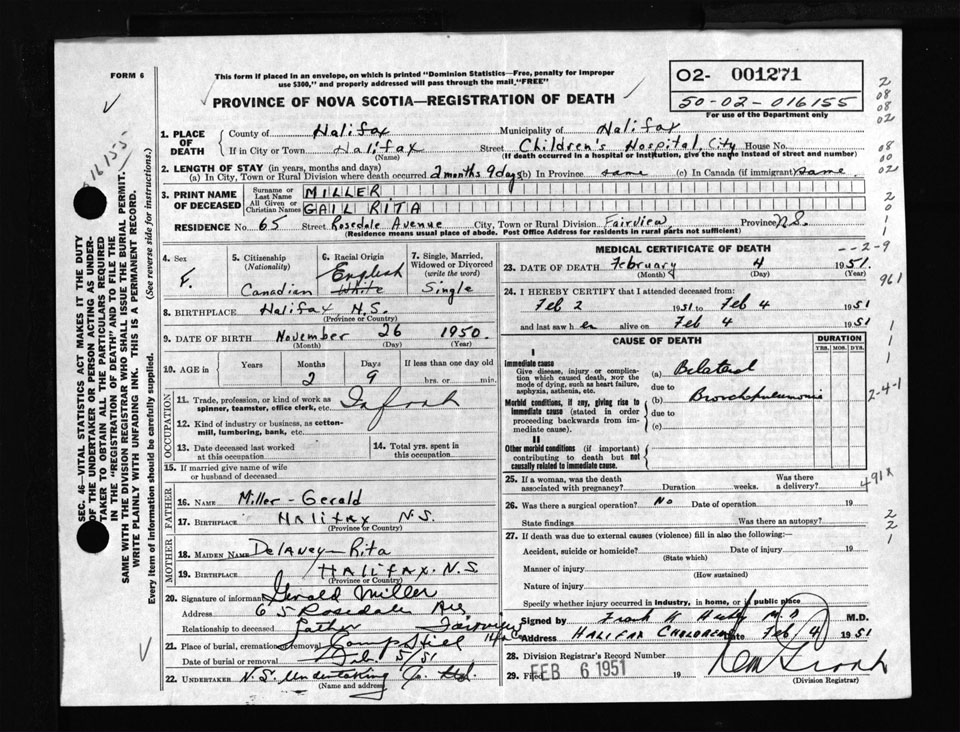 FORM 6
This form if placed in an envelope, on which is printed "Dominion Statistics—Free, penalty for improper
use $300," and properly addressed will pass through the mail "FREE"
PROVINCE OF NOVA SCOTIA—REGISTRATION OF DEATH
02- 001271
50-02-016155
For use of the Department only
1. PLACE OF DEATH County of Halifax Municipality of Halifax
If in City or Town Halifax (Name) Street Children's Hospital, City House No.
(If death occurred in a hospital or institution, give the name instead of street and number)
2. LENGTH OF STAY (in years, months and days)
(a) In City, Town or Rural Division where death occurred 2 months 9 days (b) In Province same (c) In Canada (if immigrant) same.
3. PRINT NAME OF DECEASED Surname or Last Name MILLER
All Given or Christian Names GAIL RITA
RESIDENCE No. 65 Street Rosedale Avenue City, Town or Rural Division Fairview Province N.S.
(Residence means usual place of abode. Post Office Address for residents in rural parts not sufficient)
4. Sex F.
5. Citizenship (Nationality) Canadian
6. Racial Origin English White
7. Single, Married, Widowed or Divorced (write the word) Single
8. BIRTHPLACE Halifax N.S.
(Province or Country)
9. DATE OF BIRTH November 26 1950
(Month) (Day) (Year)
10. AGE in Years Months 2 Days 9 If less than one day old
hrs. or min.
OCCUPATION
11. Trade, profession, or kind of work as
spinner, teamster, office clerk, etc. Infant
12. Kind of industry or business, as cotton-
mill, lumbering, bank, etc.
13. Date deceased last worked
at this occupation
14. Total yrs. spent in
this occupation
15. If married give name of wife
or husband of deceased
FATHER
16. NAME Miller - Gerald
17. BIRTHPLACE Halifax N.S.
(Province or Country)
MOTHER
18. MAIDEN NAME Delaney - Rita
19. BIRTHPLACE HALIFAX. N.S
(Province or Country)
20. Signature of informant Gerald Miller
Address 65 Rosedale Ave Fairview
Relationship to deceased Father
21. Place of burial, cremation or removal Camp Hill
Date of burial or removal Feb. 5/51
22. UNDERTAKER N.S. Undertaking Co. Ltd.
(Name and address)
MEDICAL CERTIFICATE OF DEATH
23. DATE OF DEATH February 4 1951.
(Month) (Day) (Year)
24. I HEREBY CERTIFY that I attended deceased from:
Feb 2 1951 to Feb 4 1951
and last saw her alive on Feb 4 1951
CAUSE OF DEATH
DURATION
YRS. MOS. DYS.
I
Immediate cause
Give disease, injury or complica-
tion which caused death, not the
mode of dying, such as heart failure,
asphyxia, asthenia, etc.
(a) Bilateral
due to
(b) Bronchopneumonia
Morbid conditions, if any, giving rise to
immediate cause (stated in order
proceeding backwards from im-
mediate cause).
due to
(c)
II
Other morbid conditions (if important)
contributing to death but not
causally related to immediate cause.
25. If a woman, was the death
associated with pregnancy? Duration weeks. Was there
a delivery?
26. Was there a surgical operation? No Date of operation 19
State findings Was there an autopsy?
27. If death was due to external causes (violence) fill in also the following:
Accident, suicide or homicide? Date of injury 19
(State which)
Manner of injury
(How sustained)
Nature of injury
Specify whether injury occurred in industry, in home, or in public place
Signed by Frank M.D. M.D.
Address HALIFAX CHILDREN Date Feb 4 1951
28. Division Registrar's Record Number
29. Filed FEB 6 1951 19
(Division Registrar)
SEC. 46—VITAL STATISTICS ACT MAKES IT THE DUTY
OF THE UNDERTAKER OR PERSON ACTING AS UNDER-
TAKER TO OBTAIN ALL THE PARTICULARS REQUIRED
IN THE "REGISTRATION OF DEATH" AND TO FILE THE
SAME WITH THE DIVISION REGISTRAR WHO SHALL ISSUE THE BURIAL PERMIT.
WRITE PLAINLY WITH UNFADING INK. THIS IS A PERMANENT RECORD.
Every item of information should be carefully supplied. (See reverse side for instructions.)
16155
2
08
08
02
08
00
02
2
0
1
1
--2-9
961
1
1
1
2-4-1
491x
2
2
1